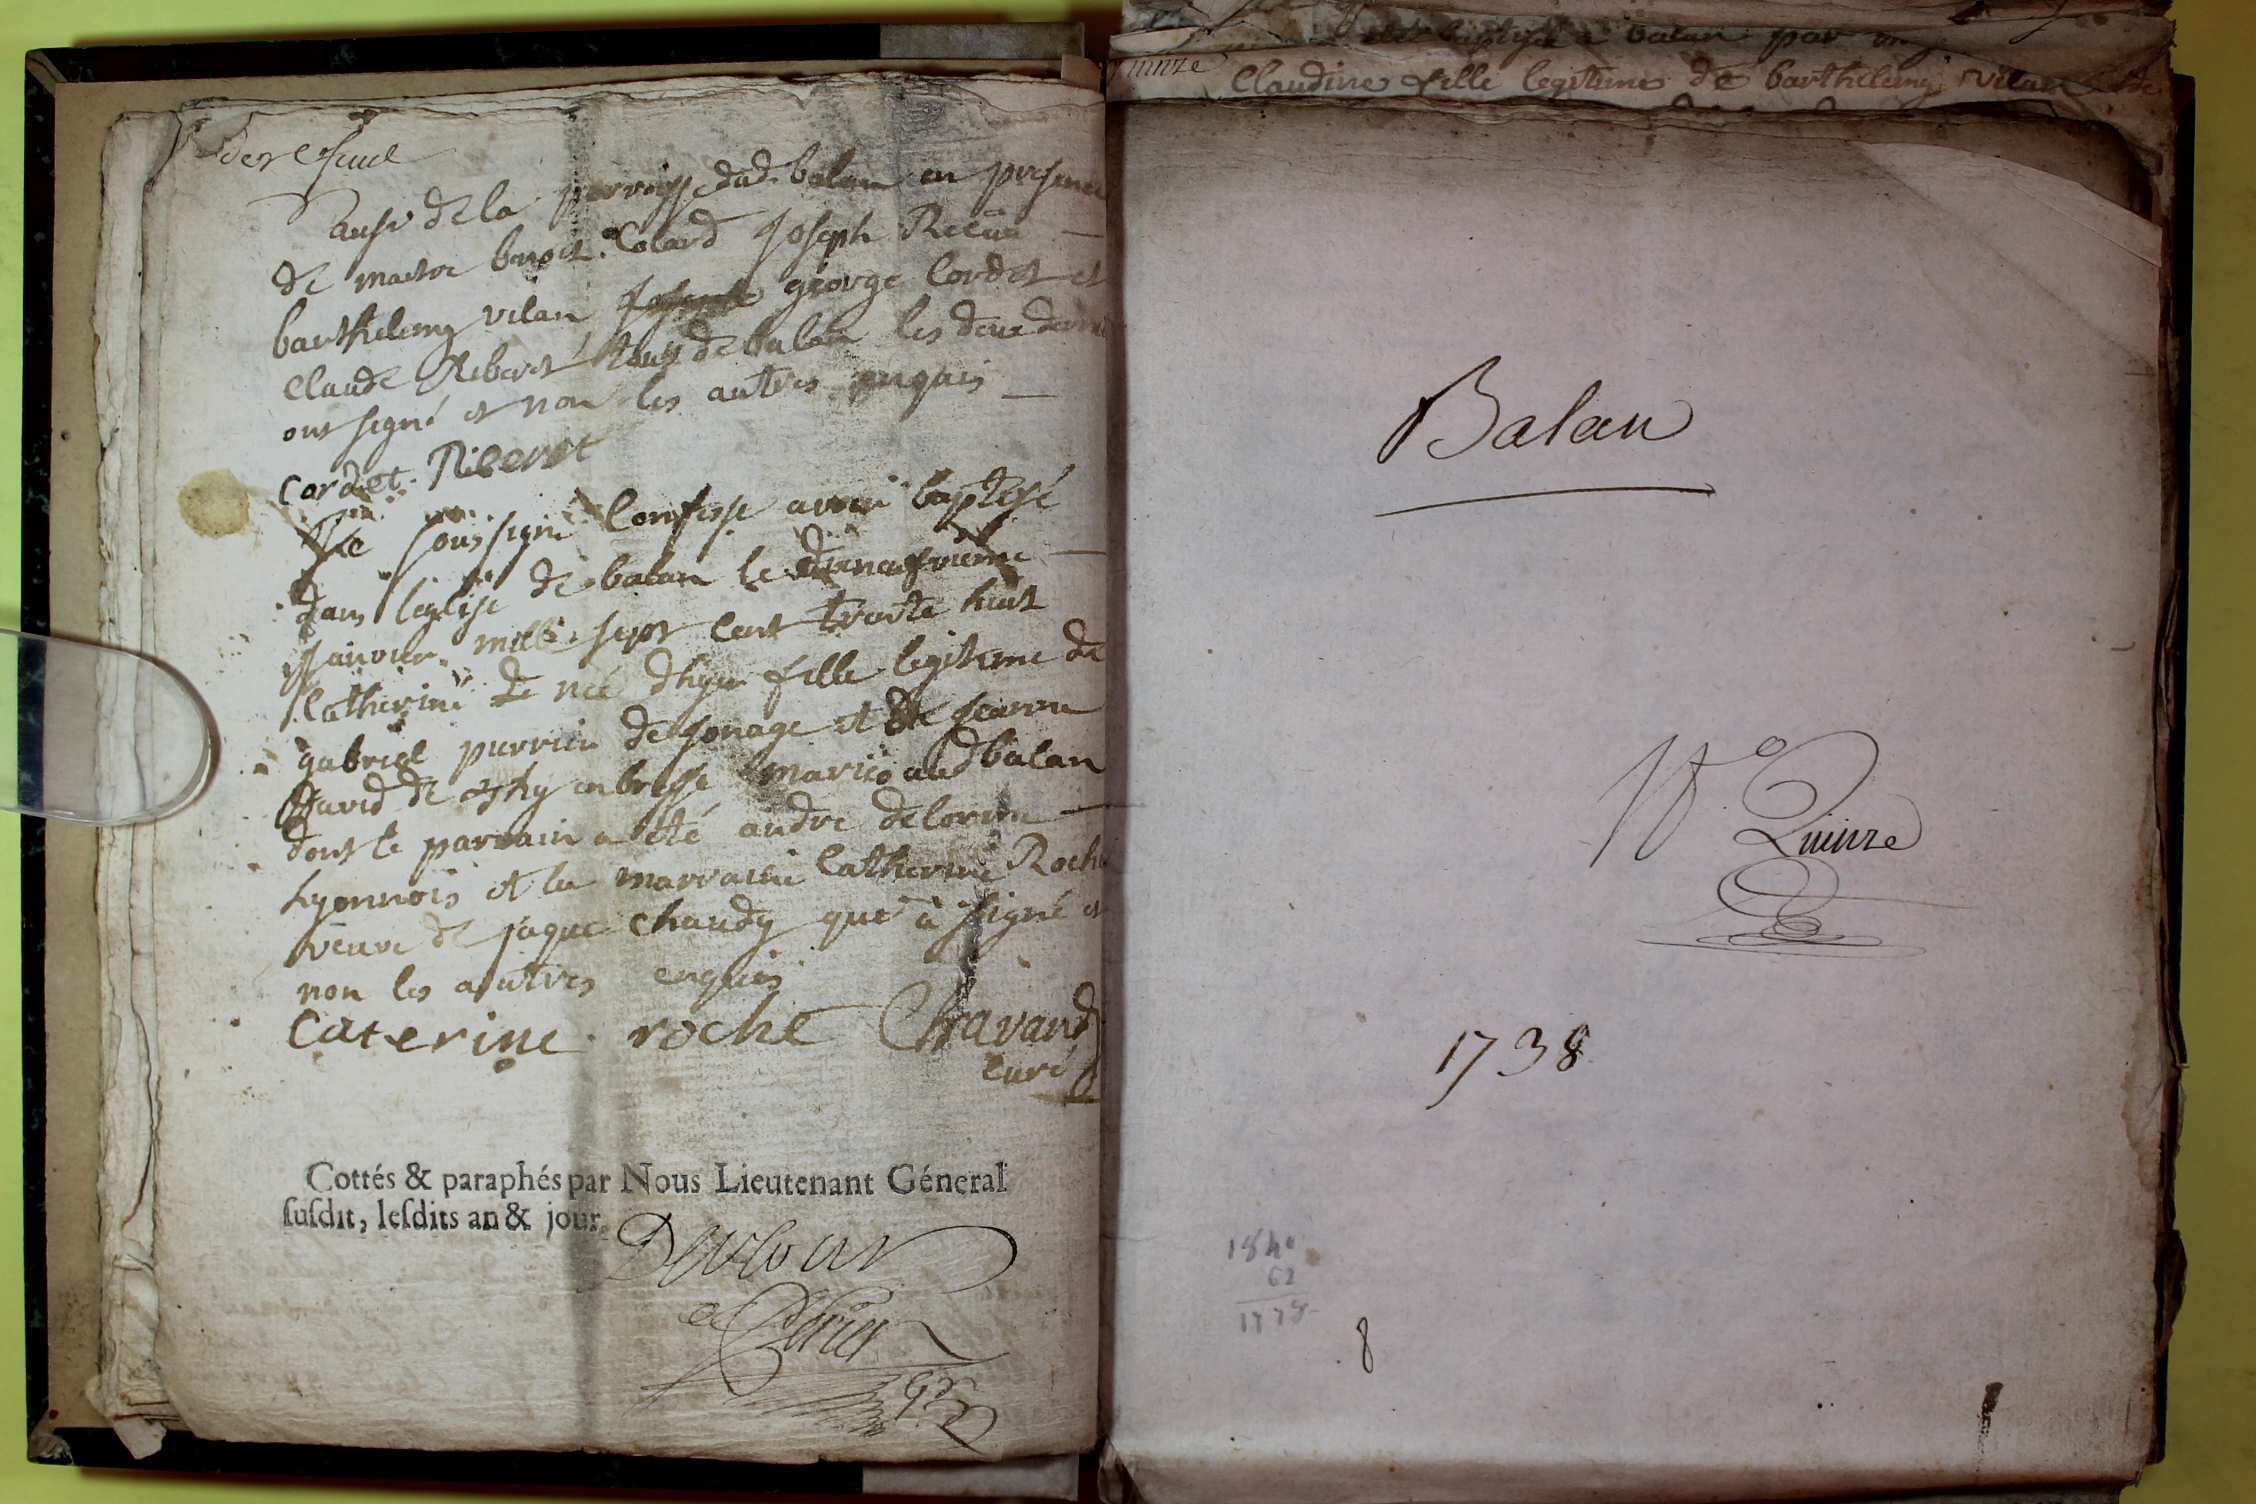 aussi de la parroisse dud. balan en presence
de maitre benoit Colard Joseph Recüa
barthelemy vilan george Cordet et
Claude Riberet tous de balan les deux derni
ont signé et non les autres enquis
Cordet Riberet
Je soussigné Confesse avoir baptisé
dans l'eglise de balan le dixneufvieme
Janvier mille sept cent trente huit
Catherine née d'hyer fille legitime de
gabriel perrier de et de jeanne
David de en bresse mariés aud balan
dont le parrain a été andre delorme
Lyonnois et la marraine Catherine Roche
veuve de jaque Chaudy que à signé et
non les autres enquis
Caterine roche Chavand
curé
Cottés & paraphés par Nous Lieutenant Géneral
susdit, lesdits an & jour.
quinze
baptisé à balan par
Claudine fille legitime de barthelemy vilan
Balan
N.º Quinze
1738
1840
62
1778
8